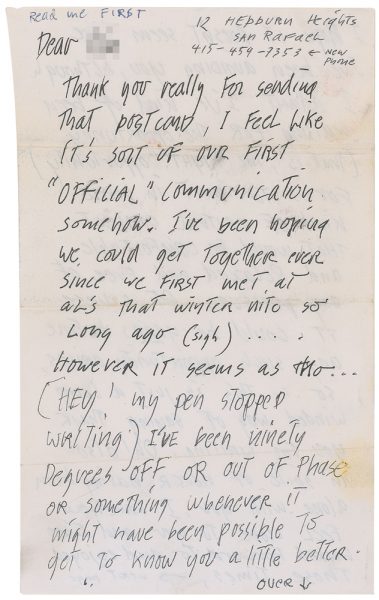 Read me FIRST
12 Hepburn Heights
San Rafael
415-459-7353 ← New Phone
Dear
Thank you really for sending
that postcard, I feel like
it's sort of our first
"OFFICIAL" communication
somehow. I've been hoping
we could get together ever
since we first met at
al's that winter nite so
long ago (sigh) .....
However it seems as tho...
(HEY! my pen stopped
writing) I've been ninety
degrees off or out of phase
or something whenever it
might have been possible to
get to know you a little better.
over ↓